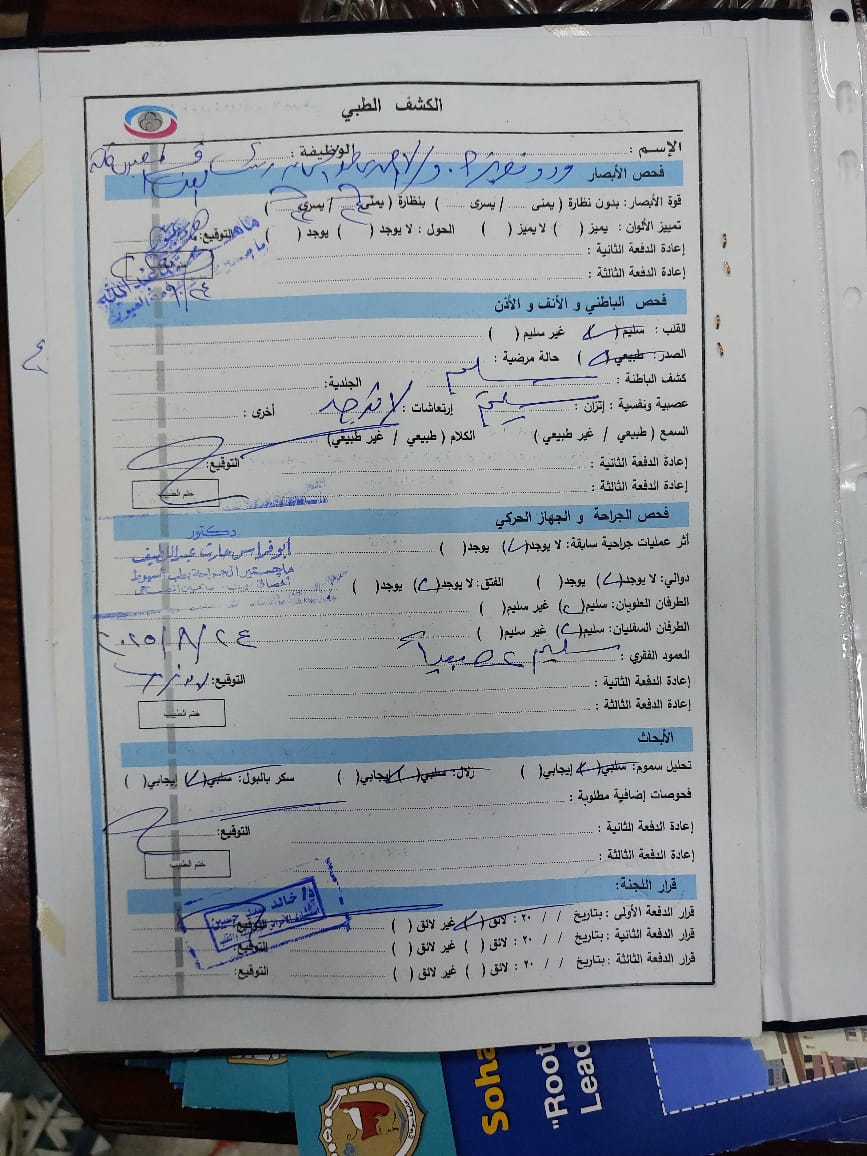 الكشف الطبي
الإسم :
الوظيفة :
فحص الأبصار
قوة الأبصار : بدون نظارة ( يمنى / يسرى ) بنظارة ( يمنى / يسرى )
تمييز الألوان : يميز ( ) لا يميز ( ) الحول : لا يوجد ( ) يوجد ( ) التوقيع:
إعادة الدفعة الثانية :
إعادة الدفعة الثالثة :
فحص الباطني و الأنف و الأذن
القلب : سليم ( ) غير سليم ( )
الصدر: طبيعي ( ) حالة مرضية :
كشف الباطنة : سليم الجلدية:
عصبية ونفسية : إتزان : سليم إرتعاشات : لا يوجد أخرى :
السمع ( طبيعي / غير طبيعي ) الكلام ( طبيعي / غير طبيعي)
إعادة الدفعة الثانية : التوقيع:
إعادة الدفعة الثالثة : ختم الطبيب
فحص الجراحة و الجهاز الحركي
دكتور
أثر عمليات جراحية سابقة: لا يوجد( ) يوجد( )
أبو فراس حارث عبد اللطيف
دوالي: لا يوجد( ) يوجد( ) الفتق: لا يوجد( ) يوجد( )
الطرفان العلويان: سليم( ) غير سليم( )
الطرفان السفليان: سليم( ) غير سليم( )
٢٠٢٥/٨/٢٤
العمود الفقري : سليم عصبياً
إعادة الدفعة الثانية : التوقيع:
إعادة الدفعة الثالثة : ختم الطبيب
الأبحاث
تحليل سموم: سلبي( ) إيجابي( ) زلال: سلبي( ) إيجابي( ) سكر بالبول: سلبي( ) إيجابي( )
فحوصات إضافية مطلوبة :
إعادة الدفعة الثانية : التوقيع:
إعادة الدفعة الثالثة : ختم الطبيب
قرار اللجنة:
قرار الدفعة الأولى : بتاريخ / / ٢٠ : لائق ( ) غير لائق ( ) التوقيع:
قرار الدفعة الثانية : بتاريخ / / ٢٠ : لائق ( ) غير لائق ( ) التوقيع:
قرار الدفعة الثالثة : بتاريخ / / ٢٠ : لائق ( ) غير لائق ( ) التوقيع:
د/ خالد حسين
Soha
"Root
Lead